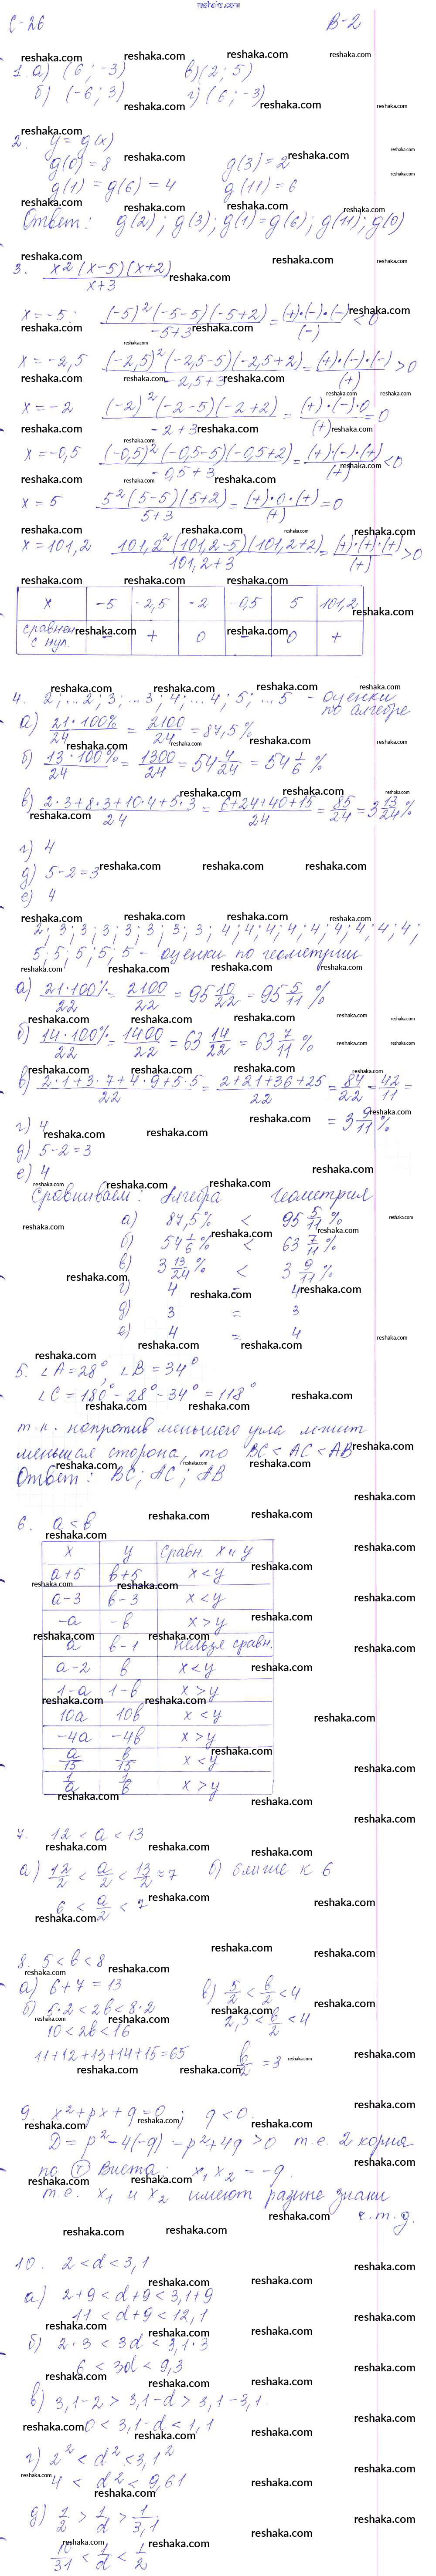 reshaka.com
С-26 В-2
1. а) (6; -3) в) (2; 5)
б) (-6; 3) г) (6; -3)
2. y = g(x)
g(0) = 8 g(3) = 2
g(1) = g(6) = 4 g(11) = 6
Ответ: g(2); g(3); g(1) = g(6); g(11); g(0)
3. x²(x-5)(x+2) / x+3
x = -5: (-5)²(-5-5)(-5+2) / -5+3 = (+)·(-)·(-) / (-) < 0
x = -2,5 (-2,5)²(-2,5-5)(-2,5+2) / -2,5+3 = (+)·(-)·(-) / (+) > 0
x = -2 (-2)²(-2-5)(-2+2) / -2+3 = (+)·(-)·0 / (+) = 0
x = -0,5 (-0,5)²(-0,5-5)(-0,5+2) / -0,5+3 = (+)·(-)·(+) / (+) < 0
x = 5 5²(5-5)(5+2) / 5+3 = (+)·0·(+) / (+) = 0
x = 101,2 101,2²(101,2-5)(101,2+2) / 101,2+3 = (+)·(+)·(+) / (+) > 0
x -5 -2,5 -2 -0,5 5 101,2
сравнен. с нул. - + 0 - 0 +
4. 2; ...2; 3; ...3; 4; ...4; 5; ...5 - оценки
по алгебре
а) 21·100% / 24 = 2100 / 24 = 87,5%
б) 13·100% / 24 = 1300 / 24 = 54 4/24 = 54 1/6 %
в) 2·3+8·3+10·4+5·3 / 24 = 6+24+40+15 / 24 = 85/24 = 3 13/24 %
г) 4
д) 5-2=3
е) 4
2; 3; 3; 3; 3; 3; 3; 3; 4; 4; 4; 4; 4; 4; 4; 4; 4;
5; 5; 5; 5; 5 - оценки по геометрии
а) 21·100% / 22 = 2100 / 22 = 95 10/22 = 95 5/11 %
б) 14·100% / 22 = 1400 / 22 = 63 14/22 = 63 7/11 %
в) 2·1+3·7+4·9+5·5 / 22 = 2+21+36+25 / 22 = 84/22 = 42/11 =
= 3 9/11 %
г) 4
д) 5-2=3
е) 4
Сравниваем: Алгебра Геометрия
а) 87,5% < 95 5/11 %
б) 54 1/6 % < 63 7/11 %
в) 3 13/24 % < 3 9/11 %
г) 4 = 4
д) 3 = 3
е) 4 = 4
5. ∠A = 28°, ∠B = 34°
∠C = 180° - 28° - 34° = 118°
т.к. напротив меньшего угла лежит
меньшая сторона, то BC < AC < AB
Ответ: BC; AC; AB
6. a < b
x y Сравн. x и y
a+5 b+5 x < y
a-3 b-3 x < y
-a -b x > y
a b-1 нельзя сравн.
a-2 b x < y
1-a 1-b x > y
10a 10b x < y
-4a -4b x > y
a/15 b/15 x < y
1/a 1/b x > y
7. 12 < a < 13
а) 12/2 < a/2 < 13/2 ≈ 7 б) ближе к 6
6 < a/2 < 7
8. 5 < b < 8
а) 6+7 = 13 в) 5/2 < b/2 < 4
б) 5·2 < 2b < 8·2 2,5 < b/2 < 4
10 < 2b < 16
11+12+13+14+15=65 b/2 = 3
9. x²+px+q=0; q<0
D = p²-4(-q) = p²+4q > 0 т.е. 2 корня
по Т Виета: x₁x₂ = -q.
т.е. x₁ и x₂ имеют разные знаки
ч.т.д.
10. 2 < d < 3,1
а) 2+9 < d+9 < 3,1+9
11 < d+9 < 12,1
б) 2·3 < 3d < 3,1·3
6 < 3d < 9,3
в) 3,1-2 > 3,1-d > 3,1-3,1.
0 < 3,1-d < 1,1
г) 2² < d² < 3,1²
4 < d² < 9,61
д) 1/2 > 1/d > 1/3,1
10/31 < 1/d < 1/2